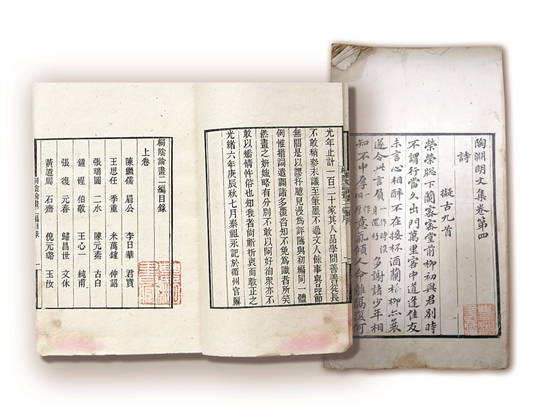 光年止計一百二十家其人品學問善善從長
不敢稍參末議至筆墨不過文人餘事與品節
無關是以謬抒臆見漫為評隲與初編同一體
例惟搢諸多覆沓知不免爲識者所笑
然畫之妍媸略有分別不敢以阿好洵衆亦不
敢以情忤俗也知我者尚折衷而教正之
光緒六年庚辰秋七月秦祖永記於衢州官廨
桐陰論畫二編目錄
上卷
陳繼儒 眉公 李日華 君實
王思任 季重 米萬鍾 仲詔
張瑞圖 二水 陳元素 古白
鍾惺 伯敬 王心一 純甫
張復 元春 歸昌世 文休
黃道周 石齋 倪元璐 玉汝
陶淵明文集卷第四
詩
擬古九首
榮榮牕下蘭密密堂前柳初與君別時
不謂行當久出門萬里客中道逢佳友
未言心相醉不在接杯酒蘭枯柳亦衰
遂令此言負 多謝諸少年相
知不中厚 意氣傾人命離隔復何